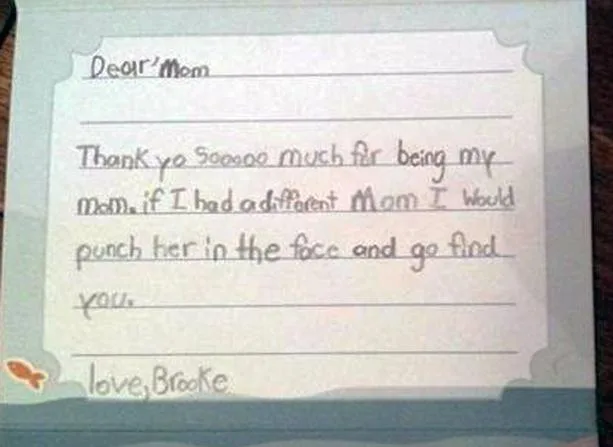 Dear Mom
Thank yo Sooooo much for being my
mom. if I had a diffarent Mom I would
punch her in the face and go find
you.
love, Brooke